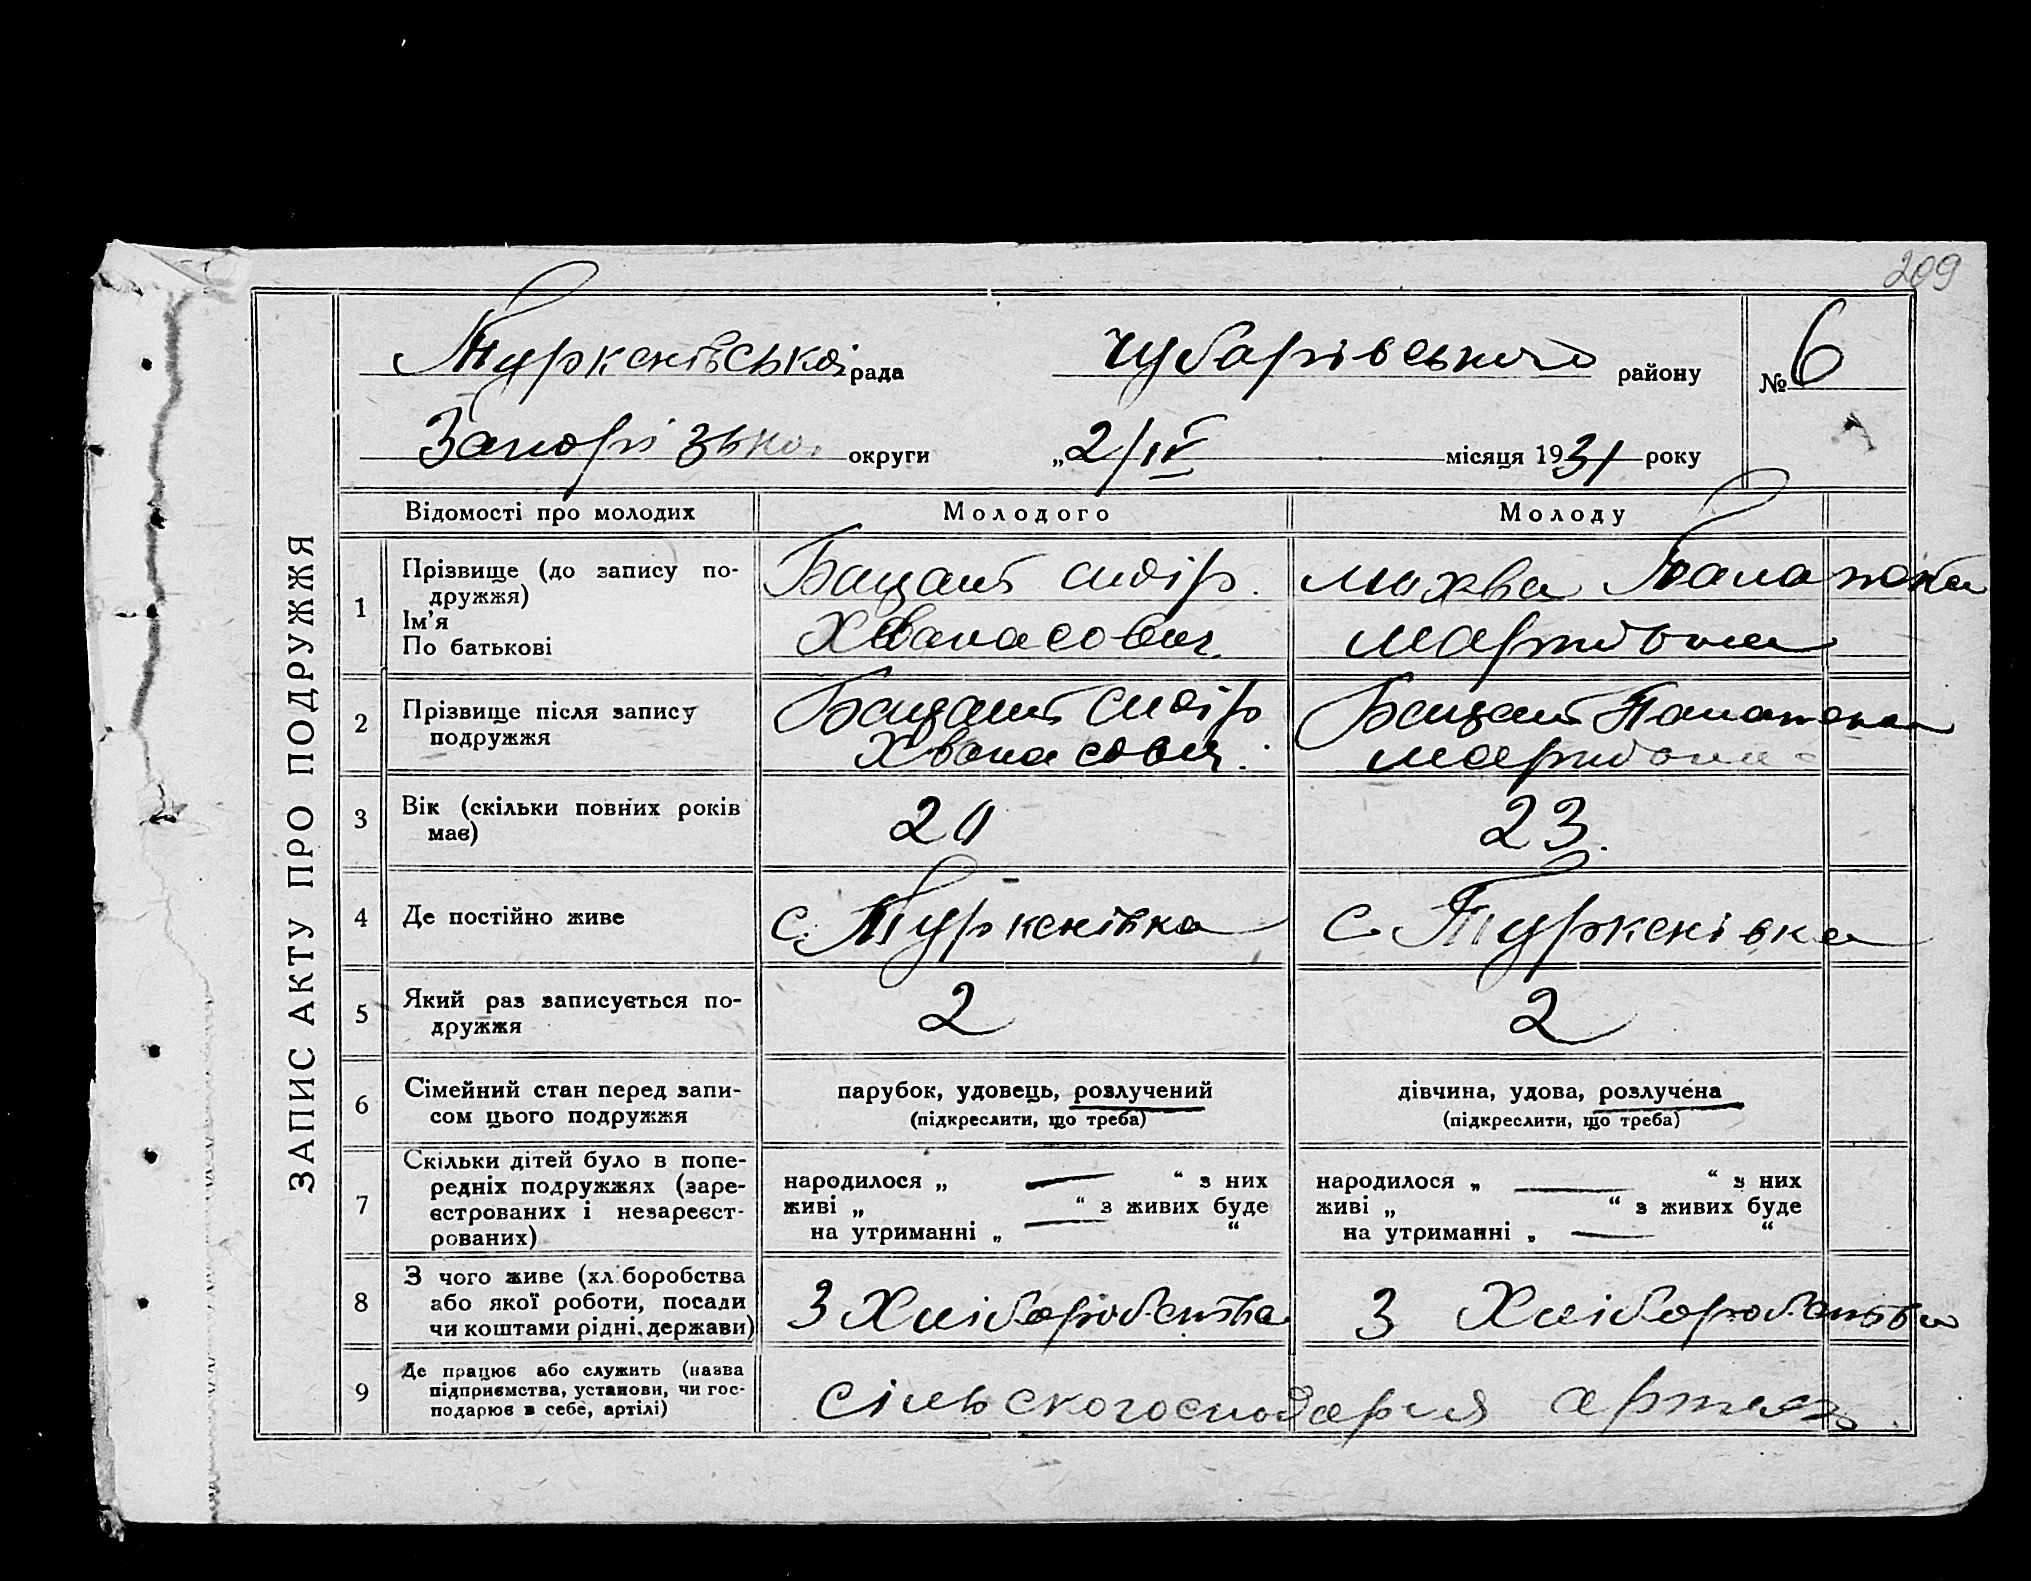 209
Туркенівської рада Чубарівського району № 6
Запорізької округи „2/IV місяця 1931 року
ЗАПИС АКТУ ПРО ПОДРУЖЖЯ
Відомості про молодих Молодого Молоду
1 Прізвище (до запису подружжя)
Ім'я
По батькові
Бащант Сидір
Хванасович
Палажка
Мартивна
2 Прізвище після запису
подружжя
Бащант Сидір
Хванасович
Бащант Палажка
Мартивна
3 Вік (скільки повних років
має)
20 23
4 Де постійно живе с. Туркенівка с. Туркенівка
5 Який раз записується по-
дружжя
2 2
6 Сімейний стан перед запи-
сом цього подружжя
парубок, удовець, розлучений
(підкреслити, що треба)
дівчина, удова, розлучена
(підкреслити, що треба)
7 Скільки дітей було в попе-
редніх подружжях (заре-
єстрованих і незареєст-
рованих)
народилося „ — “ з них
живі „ “ з живих буде
на утриманні „ — “
народилося „ — “ з них
живі „ “ з живих буде
на утриманні „ — “
8 З чого живе (хліборобства
або якої роботи, посади
чи коштами рідні, держави)
З Хліборобства З Хліборобства
9 Де працює або служить (назва
підприємства, установи, чи гос-
подарює в себе, артілі)
сільскогосподарчя